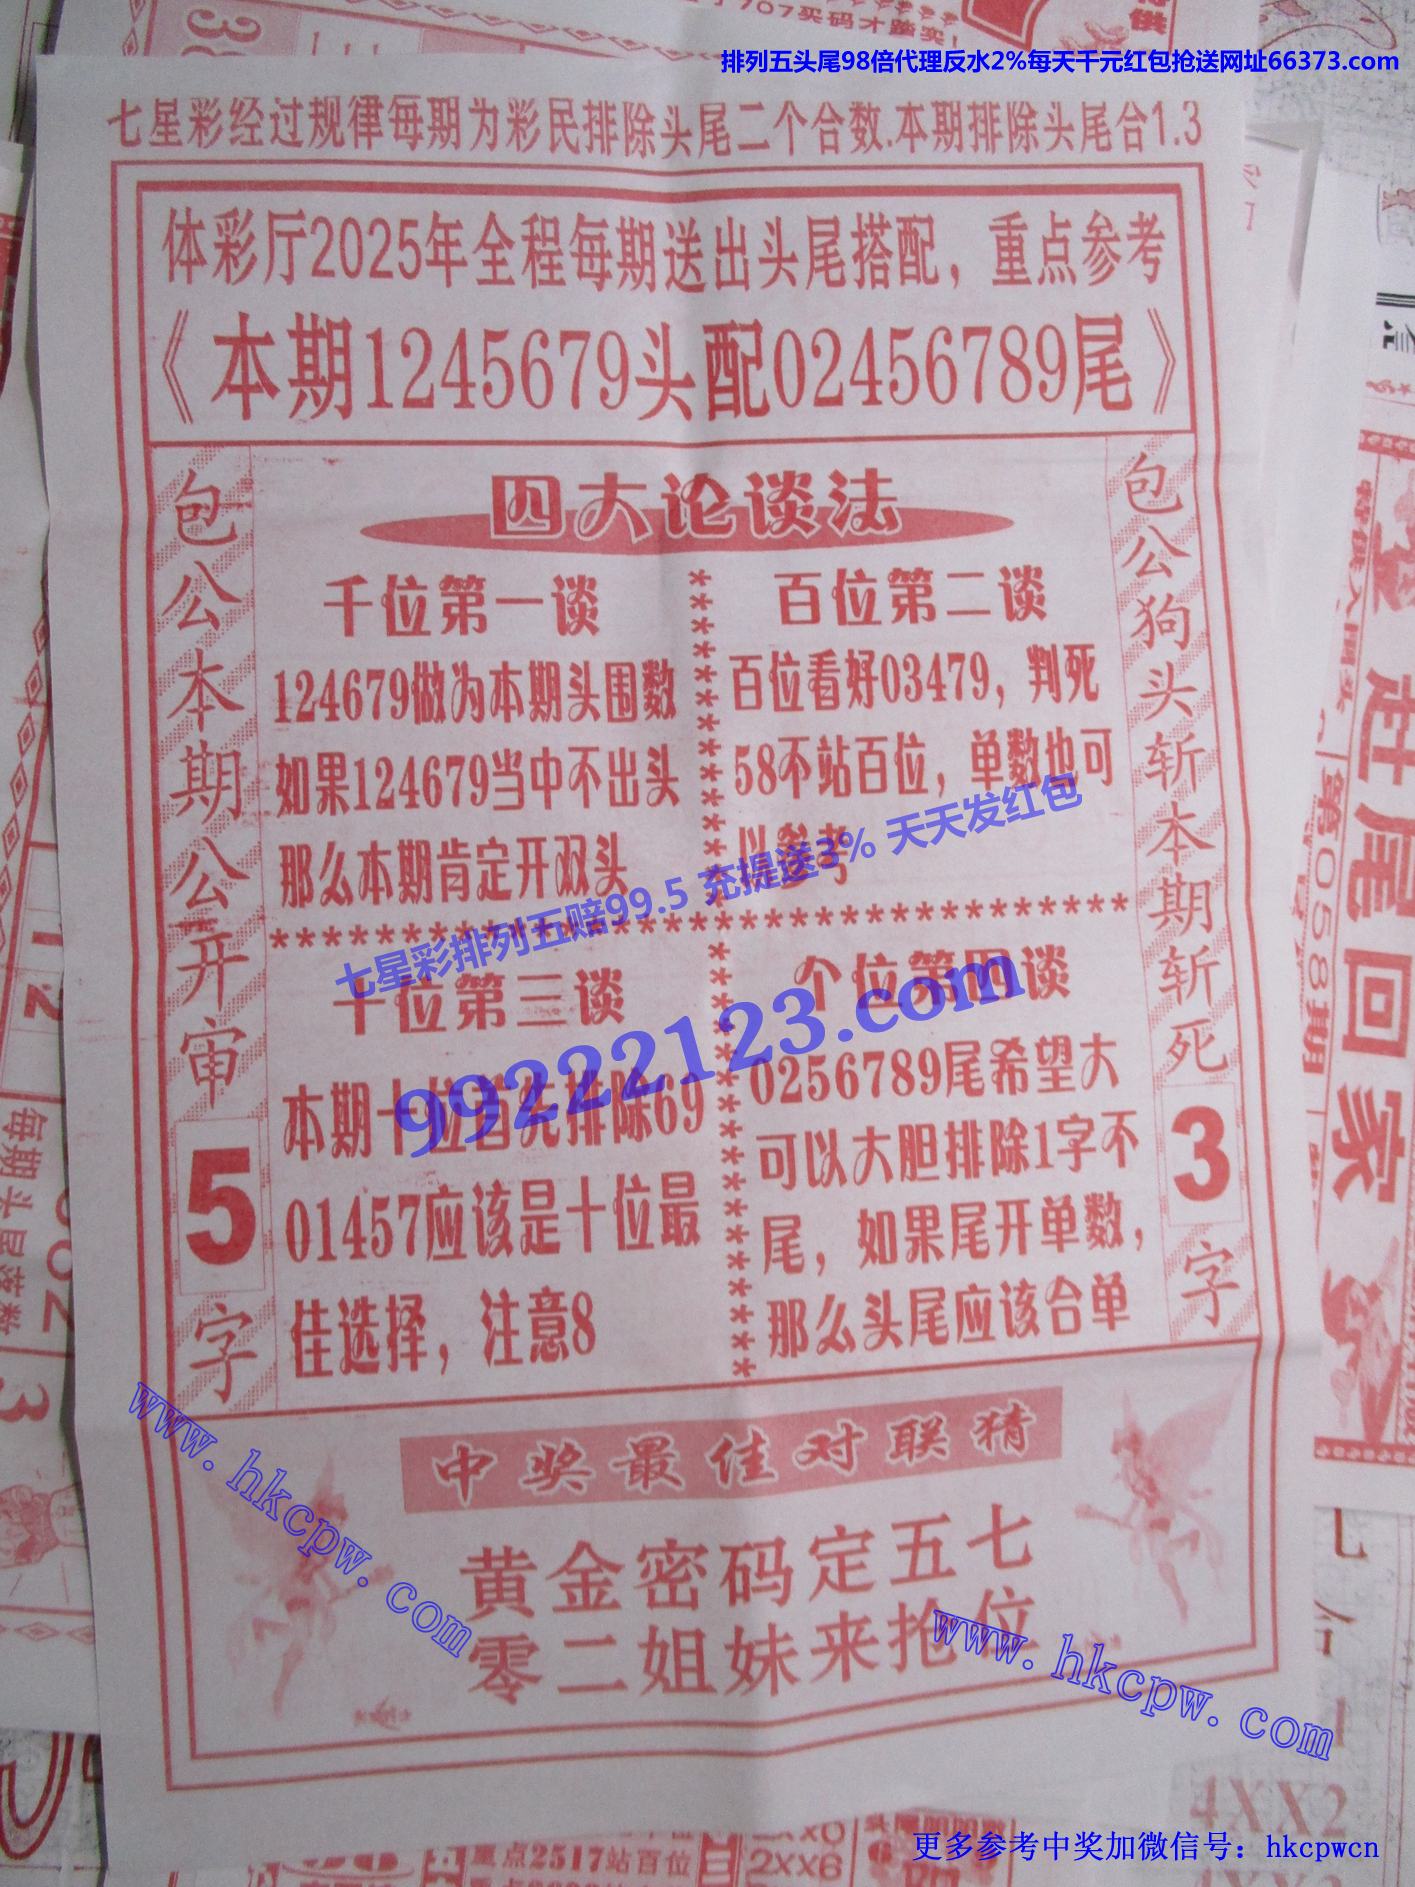 707买码才踏实!
排列五头尾98倍代理反水2%每天千元红包抢送网址66373.com
七星彩经过规律每期为彩民排除头尾二个合数.本期排除头尾合1.3
体彩厅2025年全程每期送出头尾搭配，重点参考
《本期1245679头配02456789尾》
包公本期公开审5字
四大论谈法
千位第一谈
124679做为本期头围数
如果124679当中不出头
那么本期肯定开双头
百位第二谈
百位看好03479，判死
58不站百位，单数也可
以参考
七星彩排列五赔99.5 充提送3% 天天发红包
99222123.com
十位第三谈
本期十位首先排除69
01457应该是十位最
佳选择，注意8
个位第四谈
0256789尾希望大
可以大胆排除1字不
尾，如果尾开单数，
那么头尾应该合单
包公狗头斩本期斩死3字
中奖最佳对联猜
黄金密码定五七
零二姐妹来抢位
www.hkcpw.com
www.hkcpw.com
赶尾回家
第058期
每期头尾落数
重点2517站百位
2XX6
4XX2
更多参考中奖加微信号：hkcpwcn